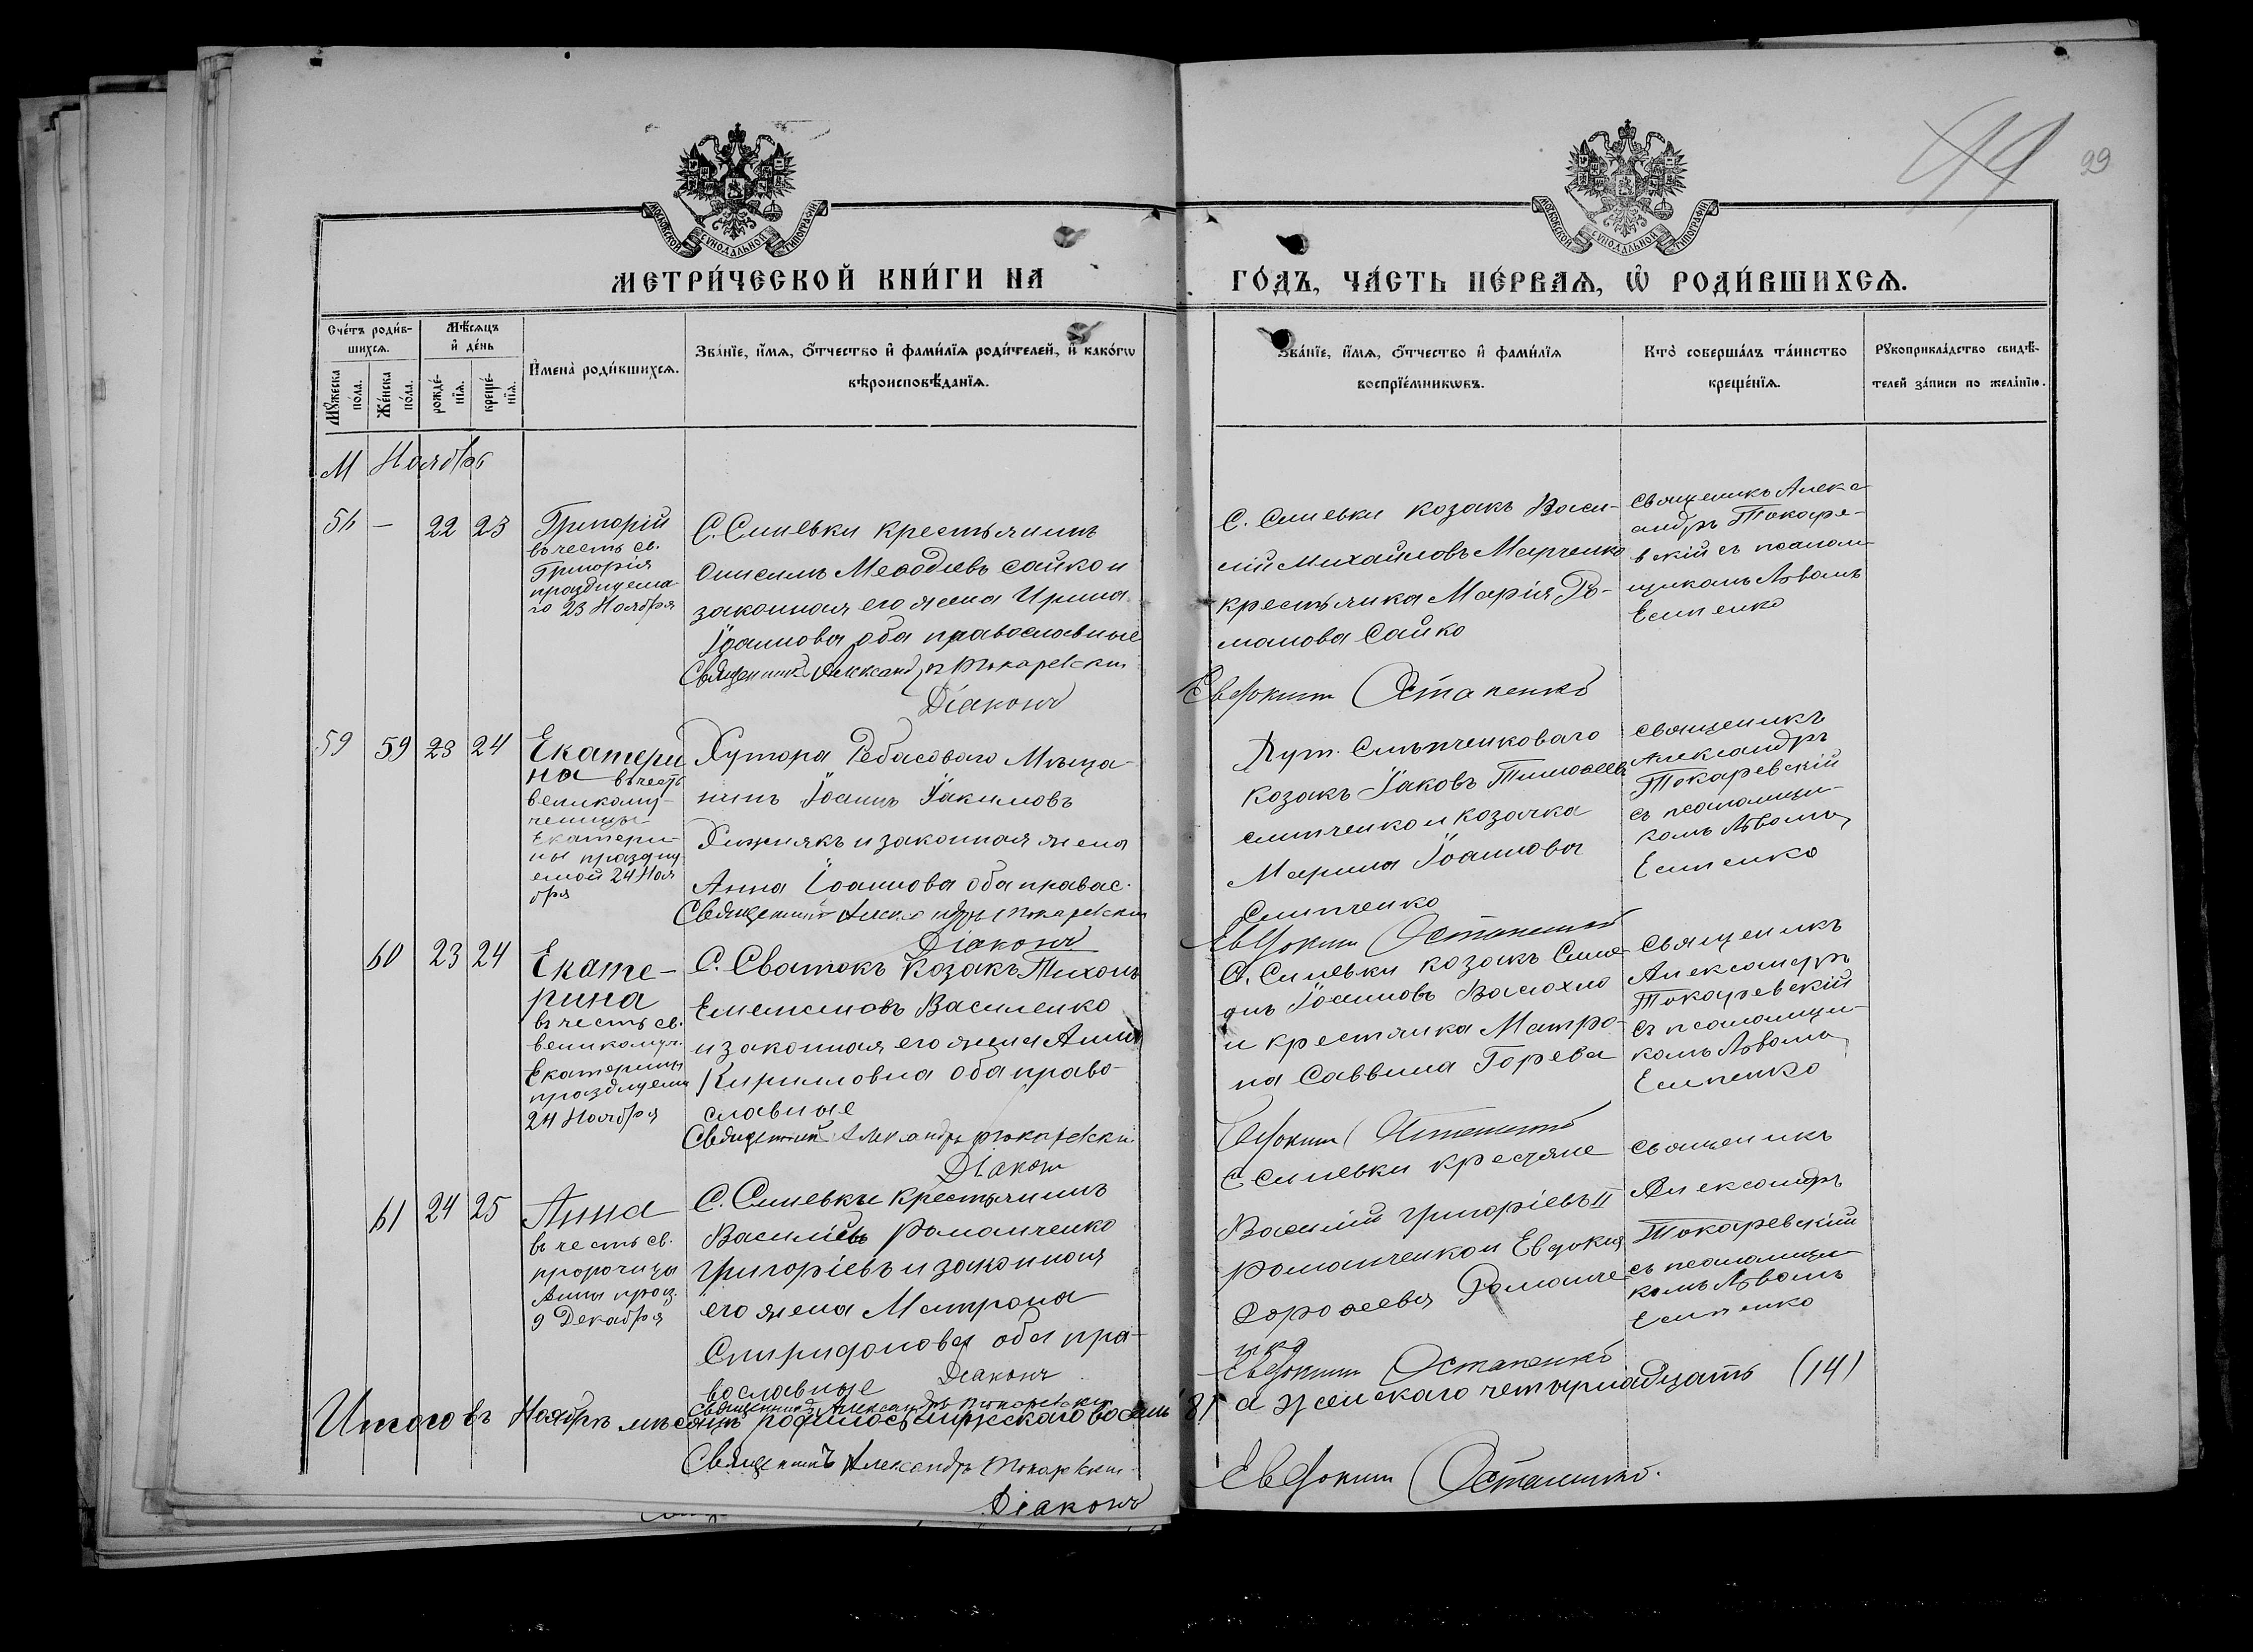 99
МОСКОВСКОЙ СУНОДАЛЬНОЙ ТИПОГРАФІИ
МОСКОВСКОЙ СУНОДАЛЬНОЙ ТИПОГРАФІИ
МЕТРИ́ЧЕСКОЙ КНИ́ГИ НА
ГО́ДЪ, ЧА́СТЬ ПЕ́РВАѦ, Ѡ РОДИ́ВШИХСѦ.
Сче́тъ роди́в-
шихсѧ.
Мꙋ́жеска по́ла.
Же́нска по́ла.
Мѣ́сѧцъ
и҆ де́нь
рожде́-
нїѧ.
креще́-
нїѧ.
И҆мена̀ роди́вшихсѧ.
Зва́нїе, и҆́мѧ, ѻ҆́тчество и҆ фами́лїѧ роди́телей, и҆ како́гѡ
вѣроисповѣ́данїѧ.
Зва́нїе, и҆́мѧ, ѻ҆́тчество и҆ фами́лїѧ
воспрїе́мникѡвъ.
Кто̀ соверша́лъ та́инство
креще́нїѧ.
Рꙋкоприкла́дство свидѣ́-
телей за́писи по жела́нїю.
М Ноябрь
— 22 23
Григорій
въ честь св.
Григорія
празднуема
го 23 Ноября
С. Синевки крестьянинъ
Онисимъ Меѳодіевъ Сайко и
законная его жена Ирина
Іоаннова оба православные
Священникъ Александръ Токаревскій
Діаконъ
С. Синевки козакъ Васи-
лій Михайловъ Марченко
крестьянка Марія Ро-
манова Сайко
Евдокимъ Остапенко
Священикъ Алекс
андръ Токаре-
вскій съ псалом
щикомъ Львомъ
Есипенко
59 59 23 24
Екатери
на въ честь
великому-
ченицы
Екатери-
ны праздну
емой 24 Ноя
бря
Хутора Ребасоваго Мѣща-
нинъ Іоаннъ Іакимовъ
Хижнякъ и законная жена
Анна Іоаннова оба правос.
Священникъ Александръ Токаревскій
Діаконъ
Хут. Слипченковаго
козакъ Іаковъ Тимоѳеевъ
Слипченко и козачка
Марина Іоаннова
Слипченко
Евдокимъ Остапенко
Священикъ
Александръ
Токаревскій
съ псаломщи-
комъ Львомъ
Есипенко
60 23 24
Екате-
рина
въ честь св.
великомуч.
Екатерины
празднуемы
24 Ноября
С. Сватокъ козакъ Тихонъ
Емельяновъ Василенко
и законная его жена Анна
Кирилловна оба право-
славные
Священникъ Александръ Токаревскій
Діаконъ
С. Синевки козакъ
Іоанновъ
и крестянка Матро-
на Саввина Горева
Евдокимъ Остапенко
Священикъ
Александръ
Токаревскій
съ псаломщи-
комъ Львомъ
Есипенко
61 24 25
Анна
въ честь св.
пророчицы
Анны праз.
9 Декабря
С. Синевки крестьянинъ
Василій Романченко
Григоріевъ и законная
его жена Матрона
Спиридонова оба пра-
вославные
Діаконъ
Священникъ Александръ Токаревскій
С Синевки крестяне
Василій Григоріевъ II
Романченко и Евдокия
Дороѳеева Романче
нко
Евдокимъ Остапенко
Священикъ
Александръ
Токаревскій
съ псаломщи-
комъ Львомъ
Есипенко
Итого въ Ноябрѣ мѣсяцѣ родилось мужскаго восемь (8) а женскаго четырнадцать (14)
Священникъ Александръ Токаревскій
Діаконъ
Евдокимъ Остапенко.